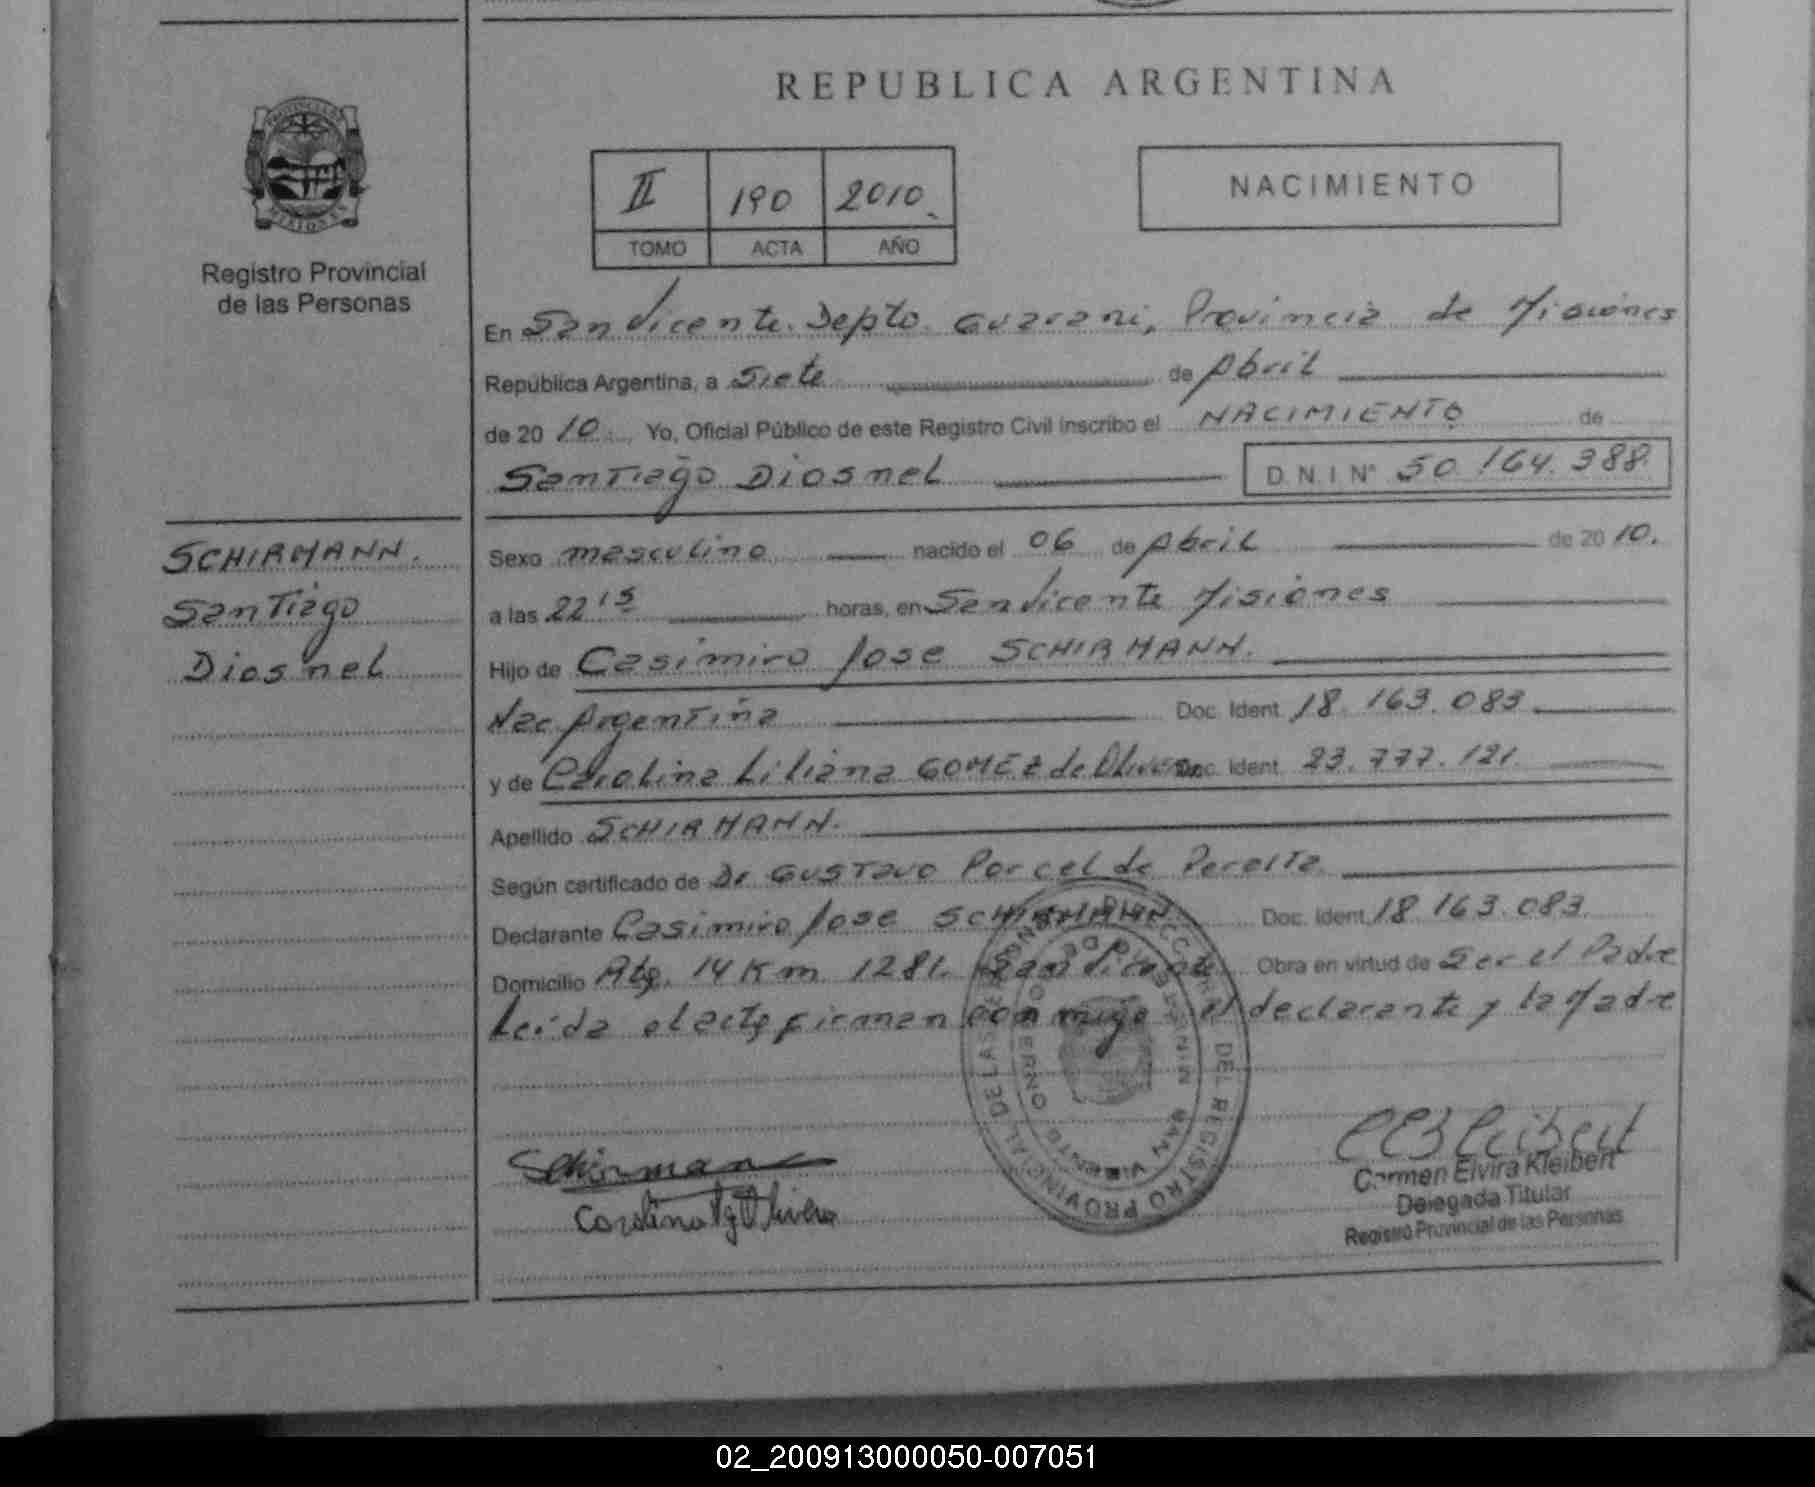 REPUBLICA ARGENTINA
PROVINCIA DE
MISIONES
Registro Provincial
de las Personas
II 190 2010
TOMO ACTA AÑO
NACIMIENTO
En San Vicente. Depto. Guarani, Provincia de Misiones
República Argentina, a Siete de Abril
de 20 10. Yo, Oficial Público de este Registro Civil inscribo el NACIMIENTO de
Santiago Diosnel D.N.I Nº 50.164.388
SCHIRMANN.
Santiago
Diosnel
Sexo masculino nacido el 06 de Abril de 20 10.
a las 22 15 horas, en San Vicente Misiones
Hijo de Casimiro Jose SCHIRMANN.
Nac. Argentina Doc. Ident. 18.163.083
y de Carolina Liliana GOMEZ de Olivera Doc. Ident. 23.777.121.
Apellido SCHIRMANN.
Según certificado de Dr GUSTavo Porcel de Peralta.
Declarante Casimiro Jose SCHIRMANN. Doc. Ident. 18 163.083.
Domicilio Rta. 14 Km 1281. San Vicente Obra en virtud de Ser el Padre
Leida el acta firman conmigo el declarante y la Madre
DIRECCION DEL REGISTRO PROVINCIAL DE LAS PERSONAS
SAN VICENTE
Schirmann
Carolina Olivera
CEKleibert
Carmen Elvira Kleibert
Delegada Titular
Registro Provincial de las Personas
02_200913000050-007051